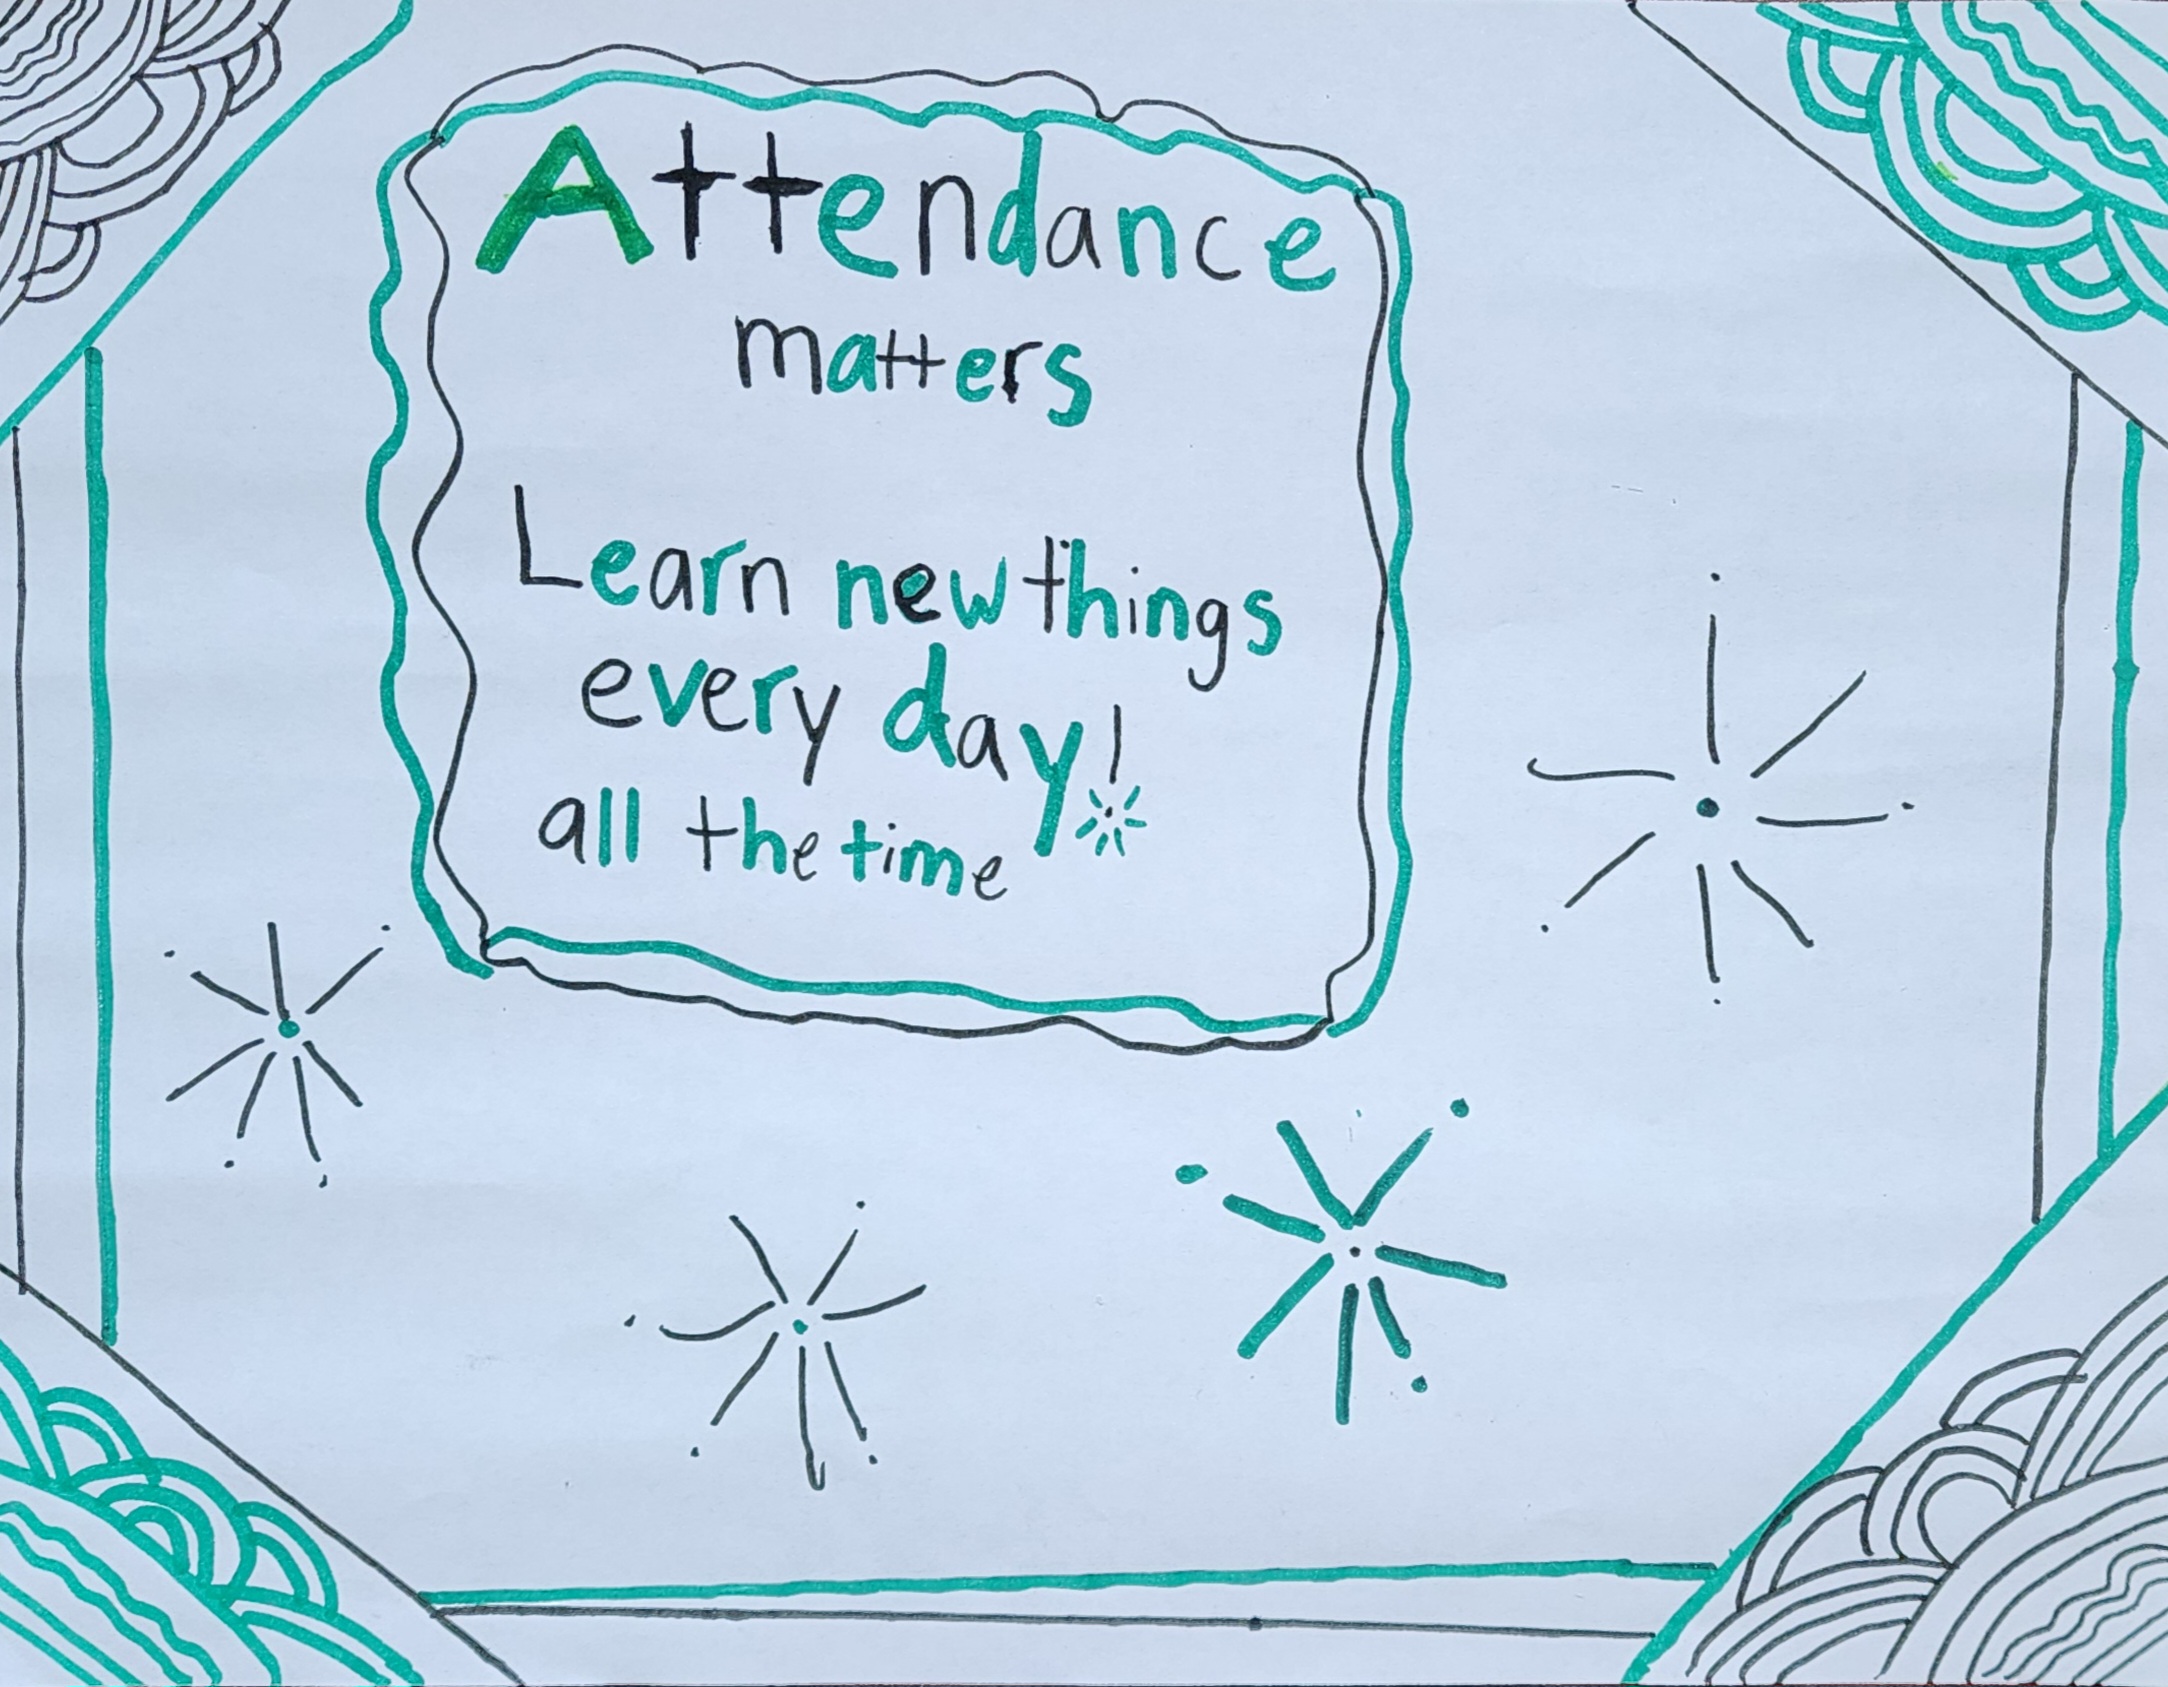 Attendance
matters
Learn new things
every day!
all the time